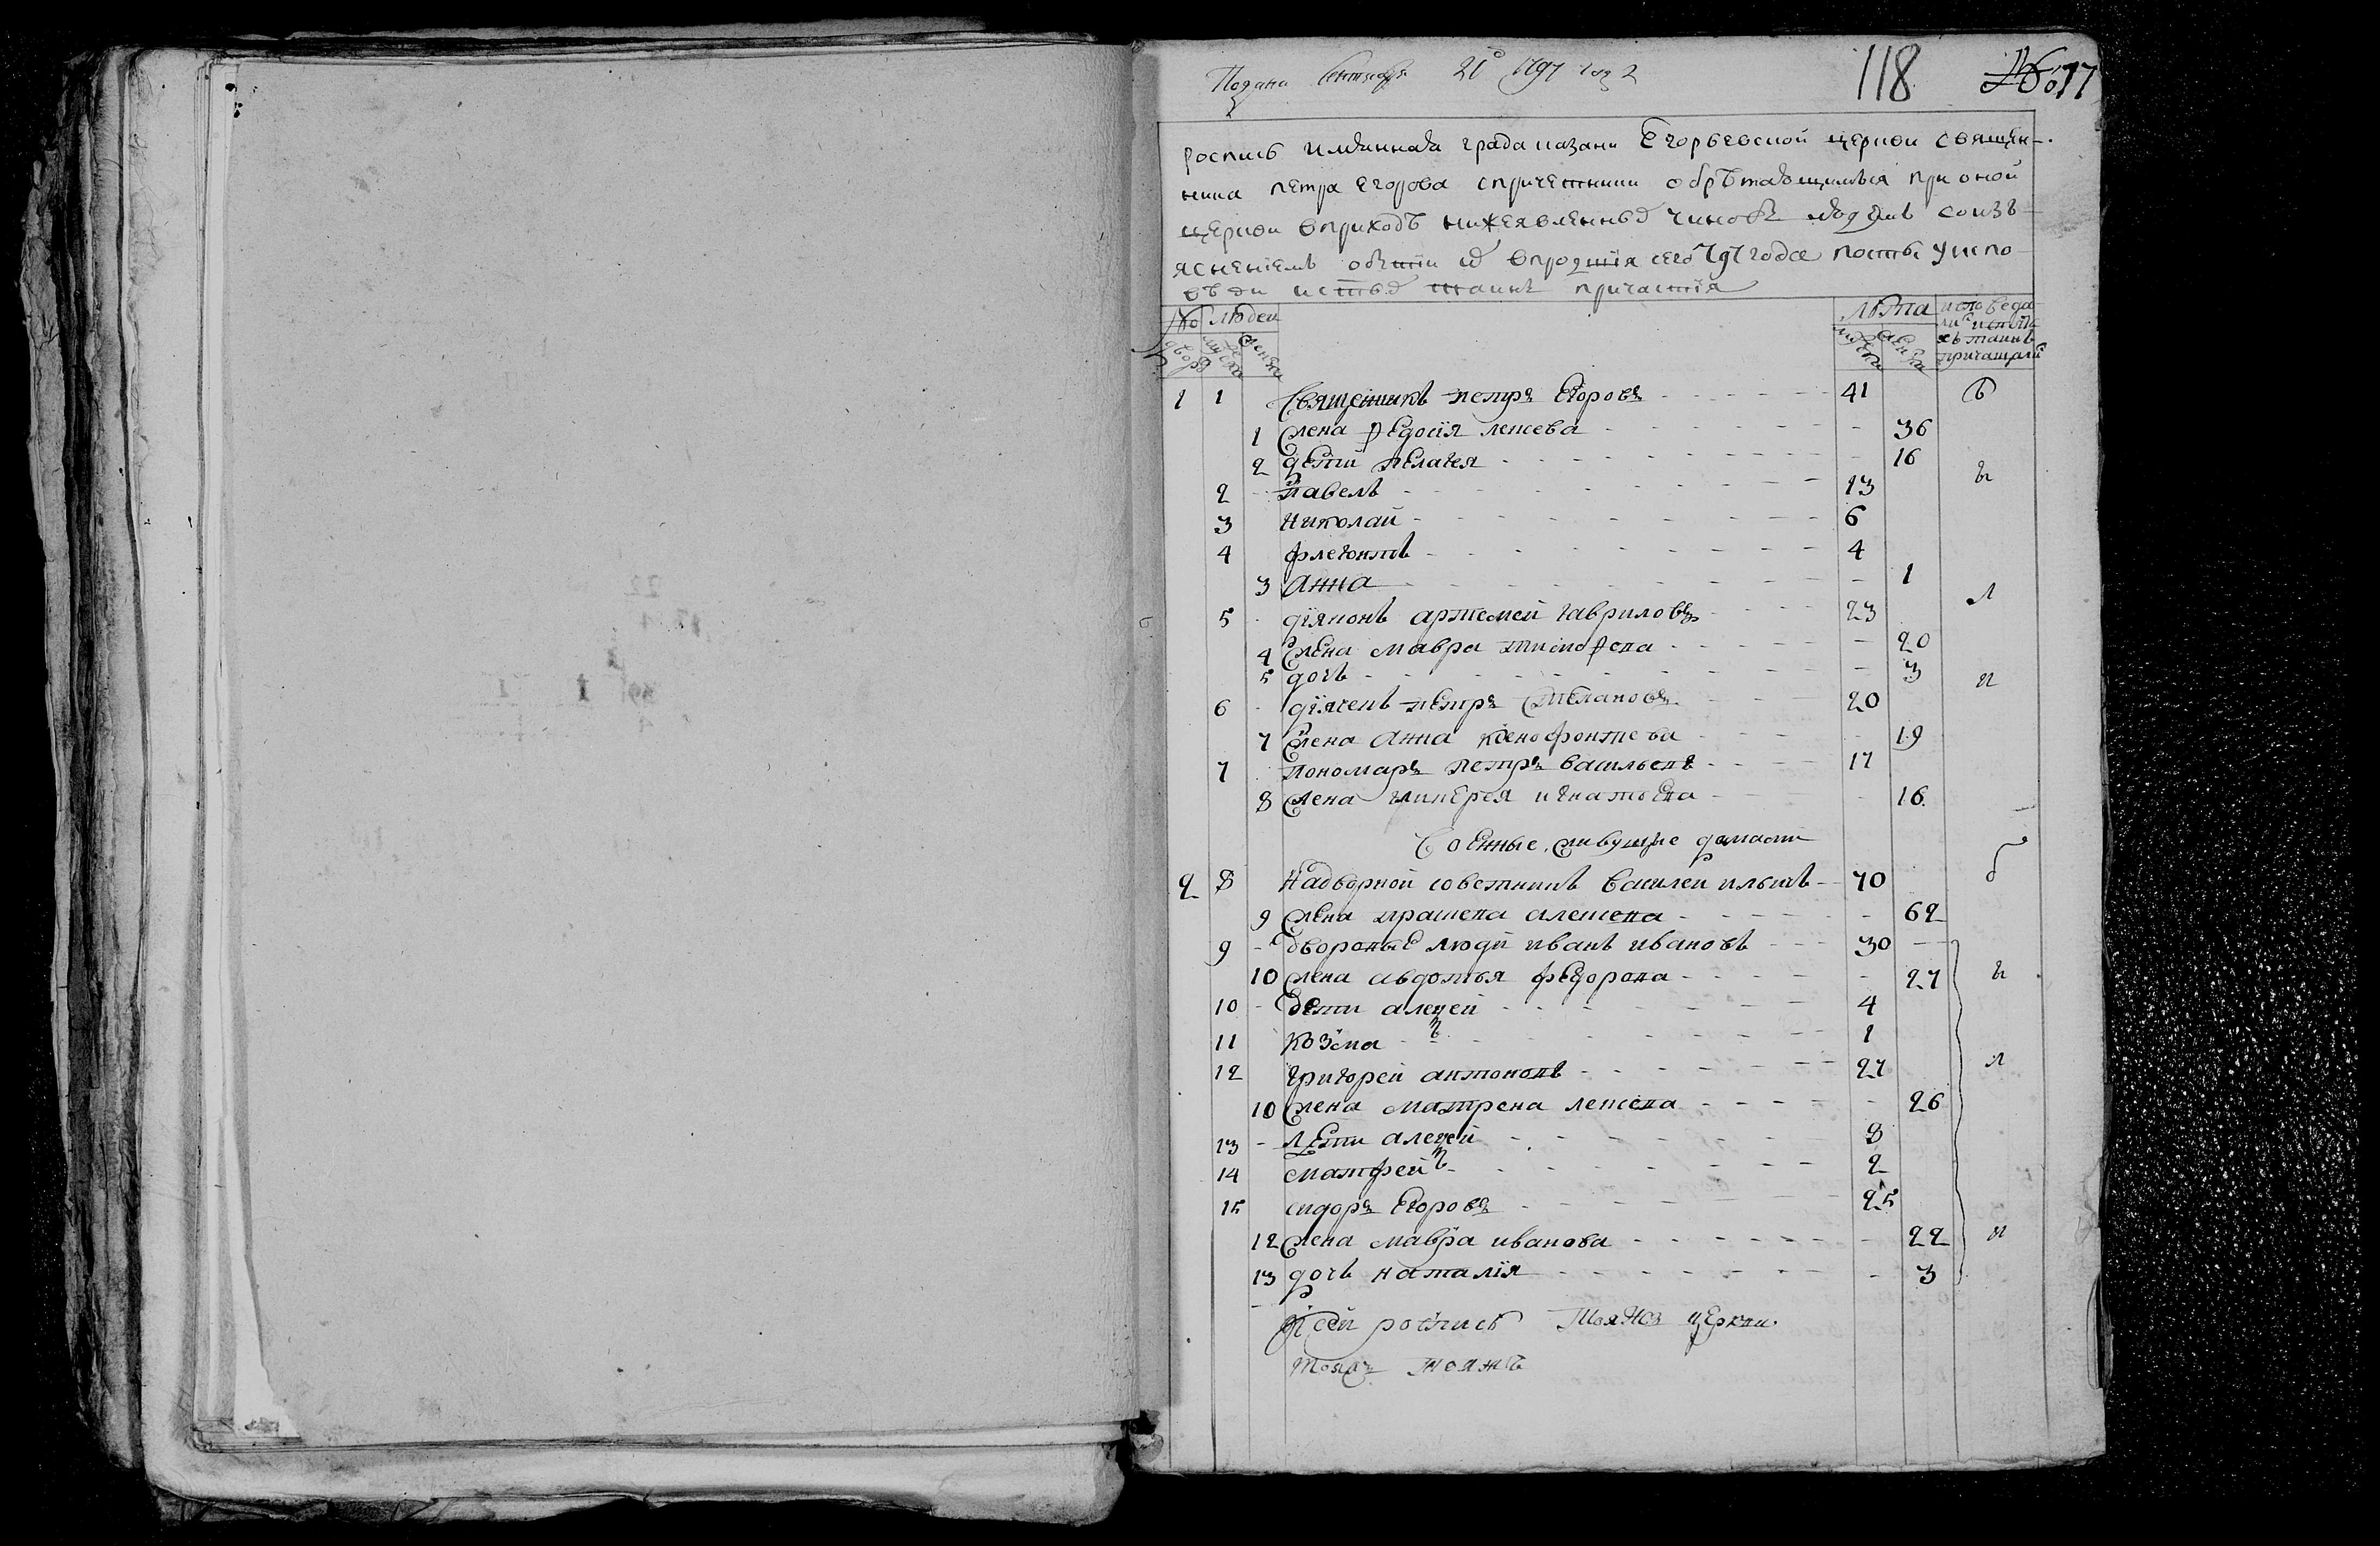 Подана Сентября 21го 1797 года
118 № 17
роспись имянная града казани Егорьевской церкви священ-
ника петра егорова спричетники обрѣтающимъся при оной
церкви вприходѣ нижеявленныхъ чиновъ людемъ соизъ-
яснениемъ бытии ихъ впродшия сего 797 года посты уиспо-
вѣди истыхъ таинъ причастия
№ дворовъ людей мужеска женска лѣта мужеска женска исповеда
ли и стыхъ таинъ причащали
1 1 Священникъ петръ Егоровъ 41 б
1 жена федосия 36
2 дети пелагея 16
2 павелъ 13 ы
3 николай 6
4 флегонтъ 4
3 анна 1
5 диаконъ артемей гавриловъ 23 л
4 жена мавра тимофеева 20
5 дочь 3
6 диячекъ петръ Степановъ 20 и
7 жена анна ксенофонтева 19
7 пономарь петръ васильевъ 17
8 жена гликерея игнатьева 16
военные живущие
2 8 Надворной советникъ василеи ильинъ 70 б
9 жена 62
9 дворовые люди иванъ ивановъ 30
10 жена авдотья федорова 27 ы
10 дети алексей 4
11 козма 1
12 григорей антоновъ 27 л
10 жена матрена 26
13 дети алексей 8
14 матфей 2
15 сидоръ Егоровъ 25
12 жена мавра иванова 22 и
13 дочь наталия 3
сей росписи церкви